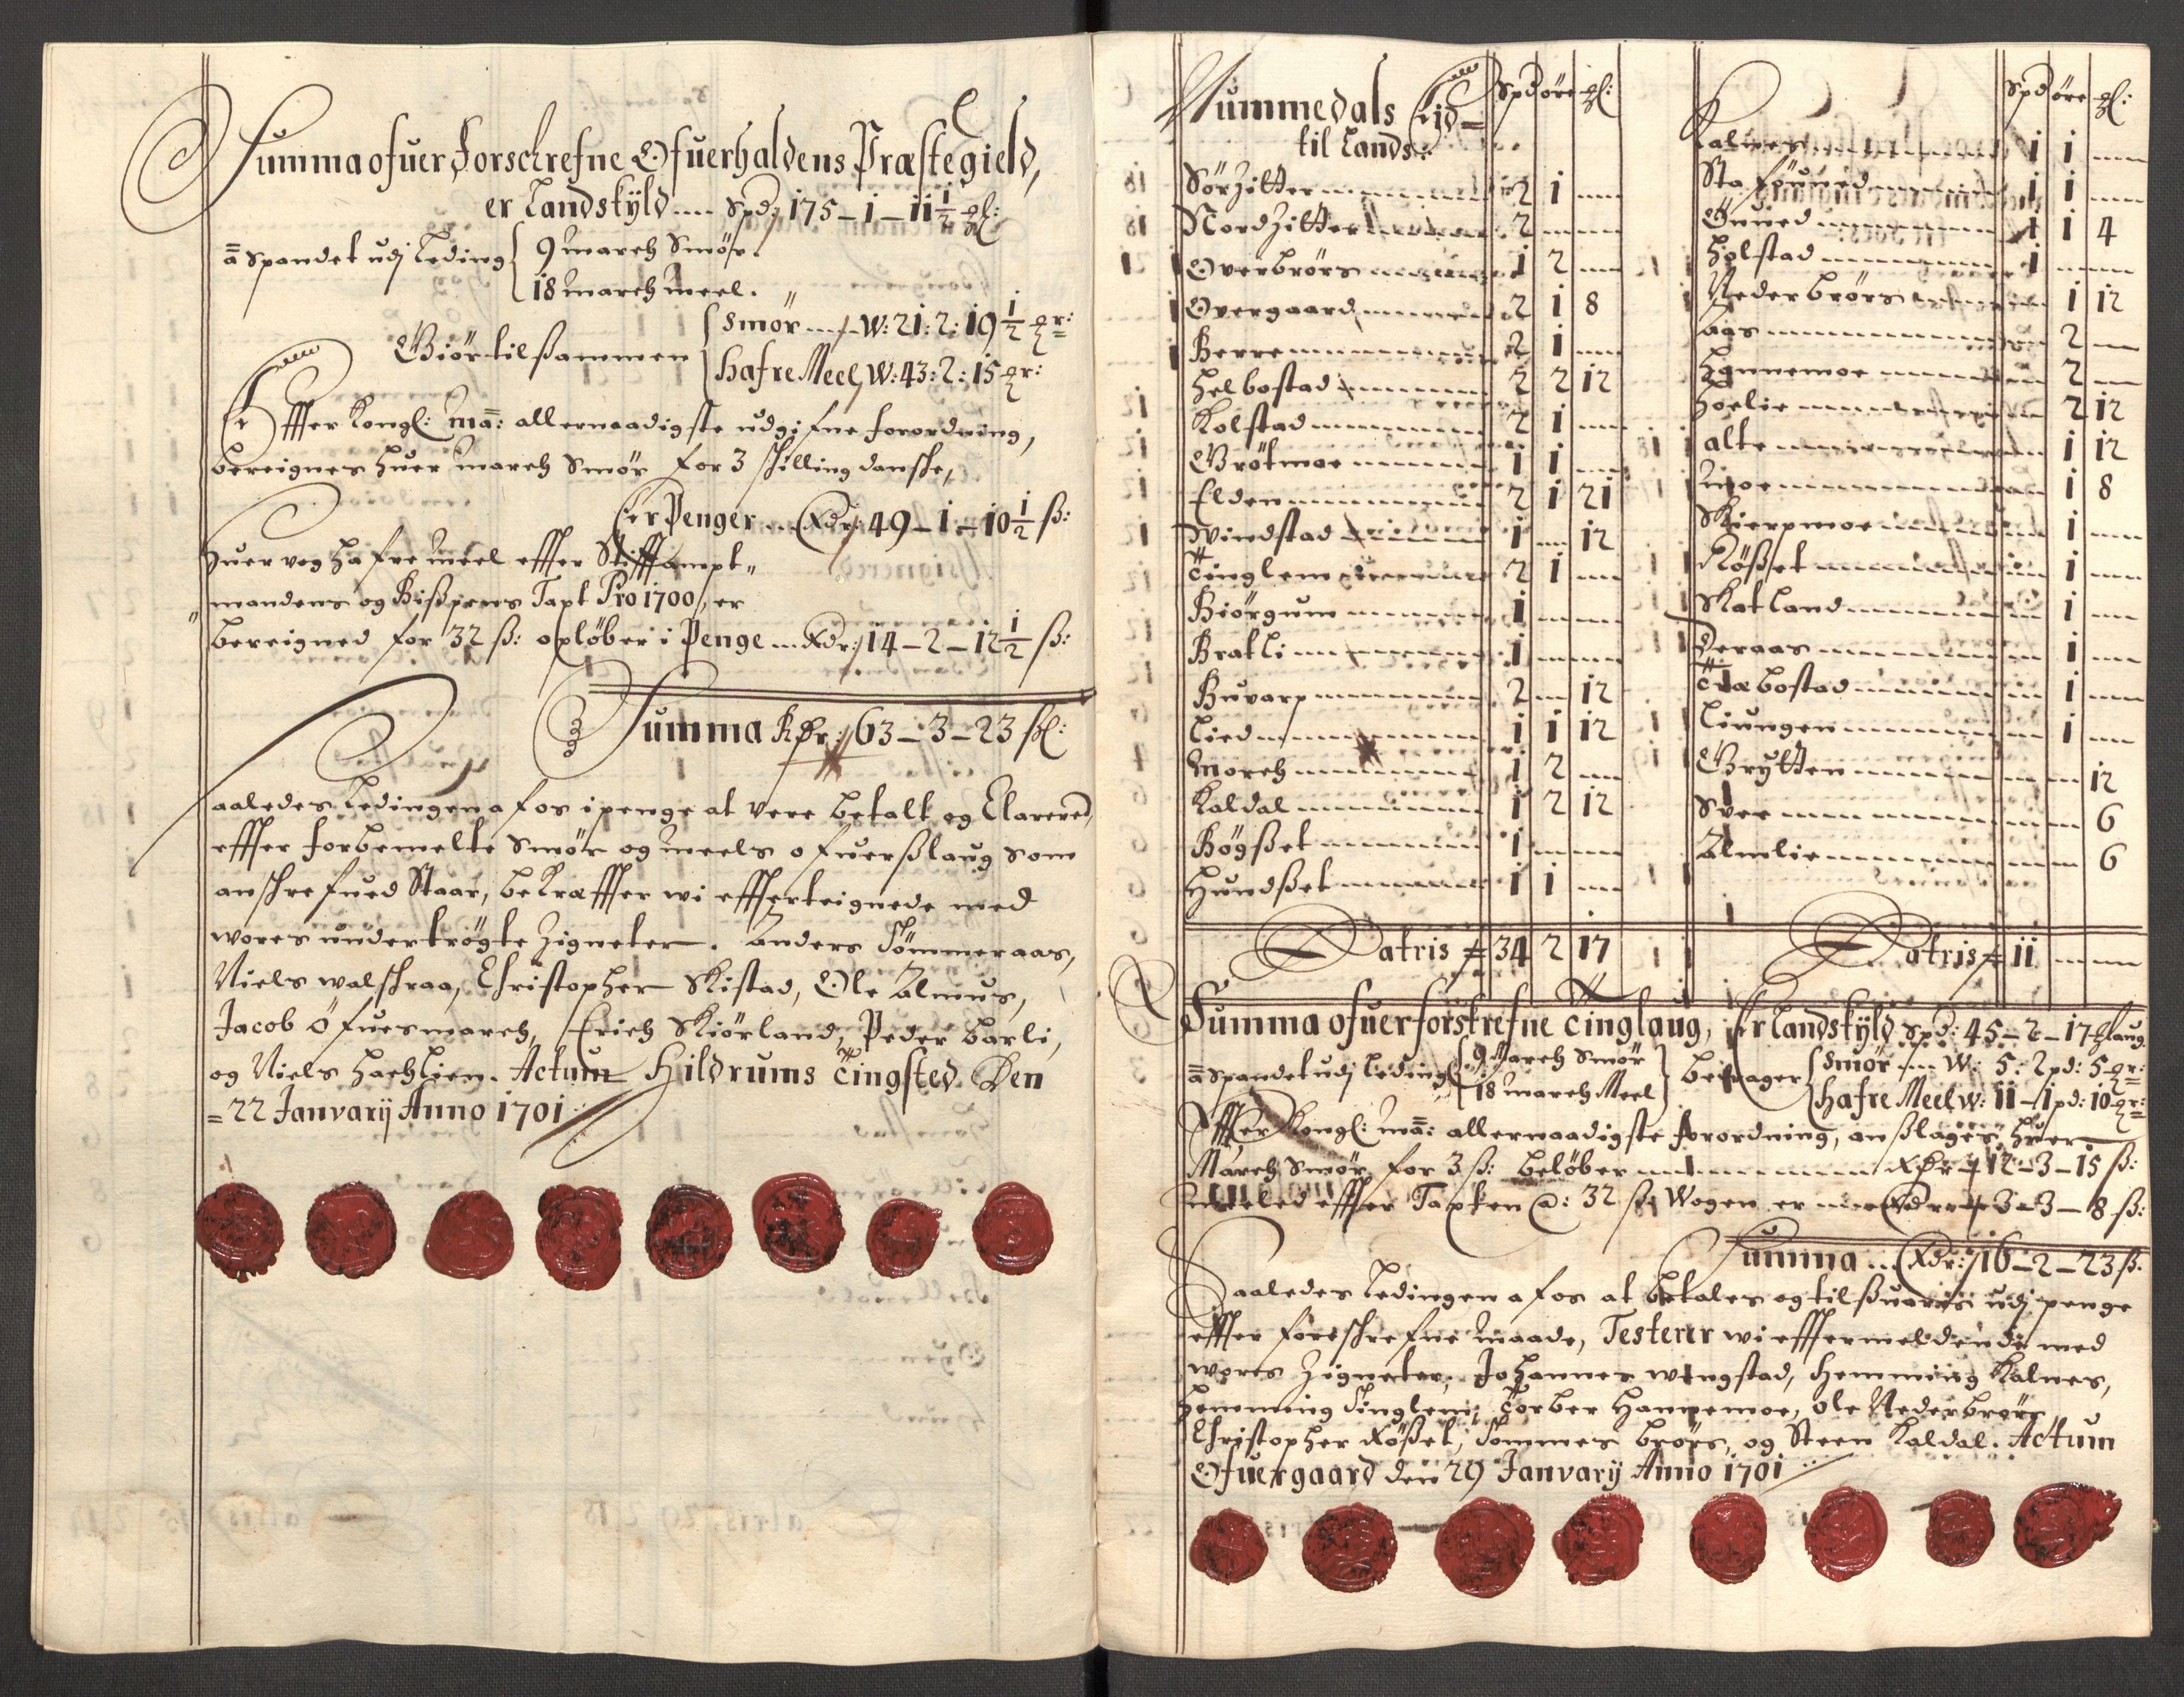 Summa ofuer Forschrefne Ofuerhaldens Præstegield,
er Landskÿld .... Spd: 175 – 1 – 11 1/2 ql:
a Spandet udj Leding { 9 march Smør.
18 march meel.
Giør tilsammen { Smør .... W: 21: 2: 19 1/2 qr:
Hafre Meel W: 43: 2: 15 qr:
Effter Kongl: Ma: allernaadigste udgifne forordning,
bereignes huer march Smør for 3 skilling danske,
er Penger ... Rdr: 49 – 1 – 10 1/2 ß:
huer vog hafre meel effter Stifftampt-
mandens og Bißpens Taxt Pro 1700, er
bereigned for 32 ß: opløber i Penge ... Rdr: 14 – 2 – 12 1/2 ß:
Summa Rdr: 63 – 3 – 23 ßl:
Saaledes Ledingen a fos i penge at vere betalt og Clarered,
effter forbemelte Smør og meels ofuerßlaug som
anskrefued Staar, bekræffter wi effterteignede med
wores undertrøgte Zigneter. Anders Sømmeraas,
Niels walskraa, Christopher Skistad, Ole Almus,
Jacob Øfuesmarch, Erich Skiørland, Peder Barli,
og Niels Hachlien. Actum Hildrums Tingsted Den
22 Janvarij Anno 1701
Nummedals Eid-
til Lands:
Spd øre ql:
Sørzitter 2 1
Nordzitter 2
Overbrørs 1 2
Overgaard 2 1 8
Berre 2 1
Helbostad 2 2 12
Kolstad 2 1
Grøtmoe 1 1
Elden 2 1 21
Windstad 1 12
Tinglem 2 1
Biørgum 1
Bratli 1
Buvarp 2 12
Lied 1 1 12
Morch 1 2
Kaldal 1 2 12
Bøgßet 1
Hundßet 1 1
Latris 34 2 17
Spd øre ql:
Kalnes 1 1
1 1
1 1 4
Holstad 1
Nederbrørs 1 12
Aas 2
Hannemoe 2
Hoelie 2 12
Alte 1 12
Moe 1 8
Skierpmoe 1
Røßset 1
Skatland 1
Deraas 1
Træbostad 1
Liungen 1
Grytten 12
Svee 6
Almlie 6
Latris 11
Summa ofuer forskrefne Tinglaug, Er Landskÿld Spd: 45 – 2 – 17
a Spandet udj Leding { 9 March Smør
18 march Meel } bedrager { Smør .... W: 5: 2 pd: 5 qr:
Hafre Meel W: 11 – 1 pd: 10 qr:
Effter Kongl: Ma: allernaadigste forordning, anßlages huer
March Smør for 3 ß: beløber Rdr 12 – 3 – 15 ß:
effter Taxten a: 32 ß: Wogen er Rdr 3 – 3 – 8 ß:
Summa ... Rdr: 16 – 2 – 23 ß:
Saaledes Ledingen a fos at betales og tilßuaris udj penge
effter foreskrefne maade, Testerer wi efftermeldende med
wores Zigneter, Johannes Wingstad, Hemming Kalnes,
Hemming Tinglem, Torber Hannemoe, Ole Nederbrørs,
Christopher Røßet, Tommes Brørs, og Steen Kaldal. Actum
Ofuergaard den 29 Janvarij Anno 1701